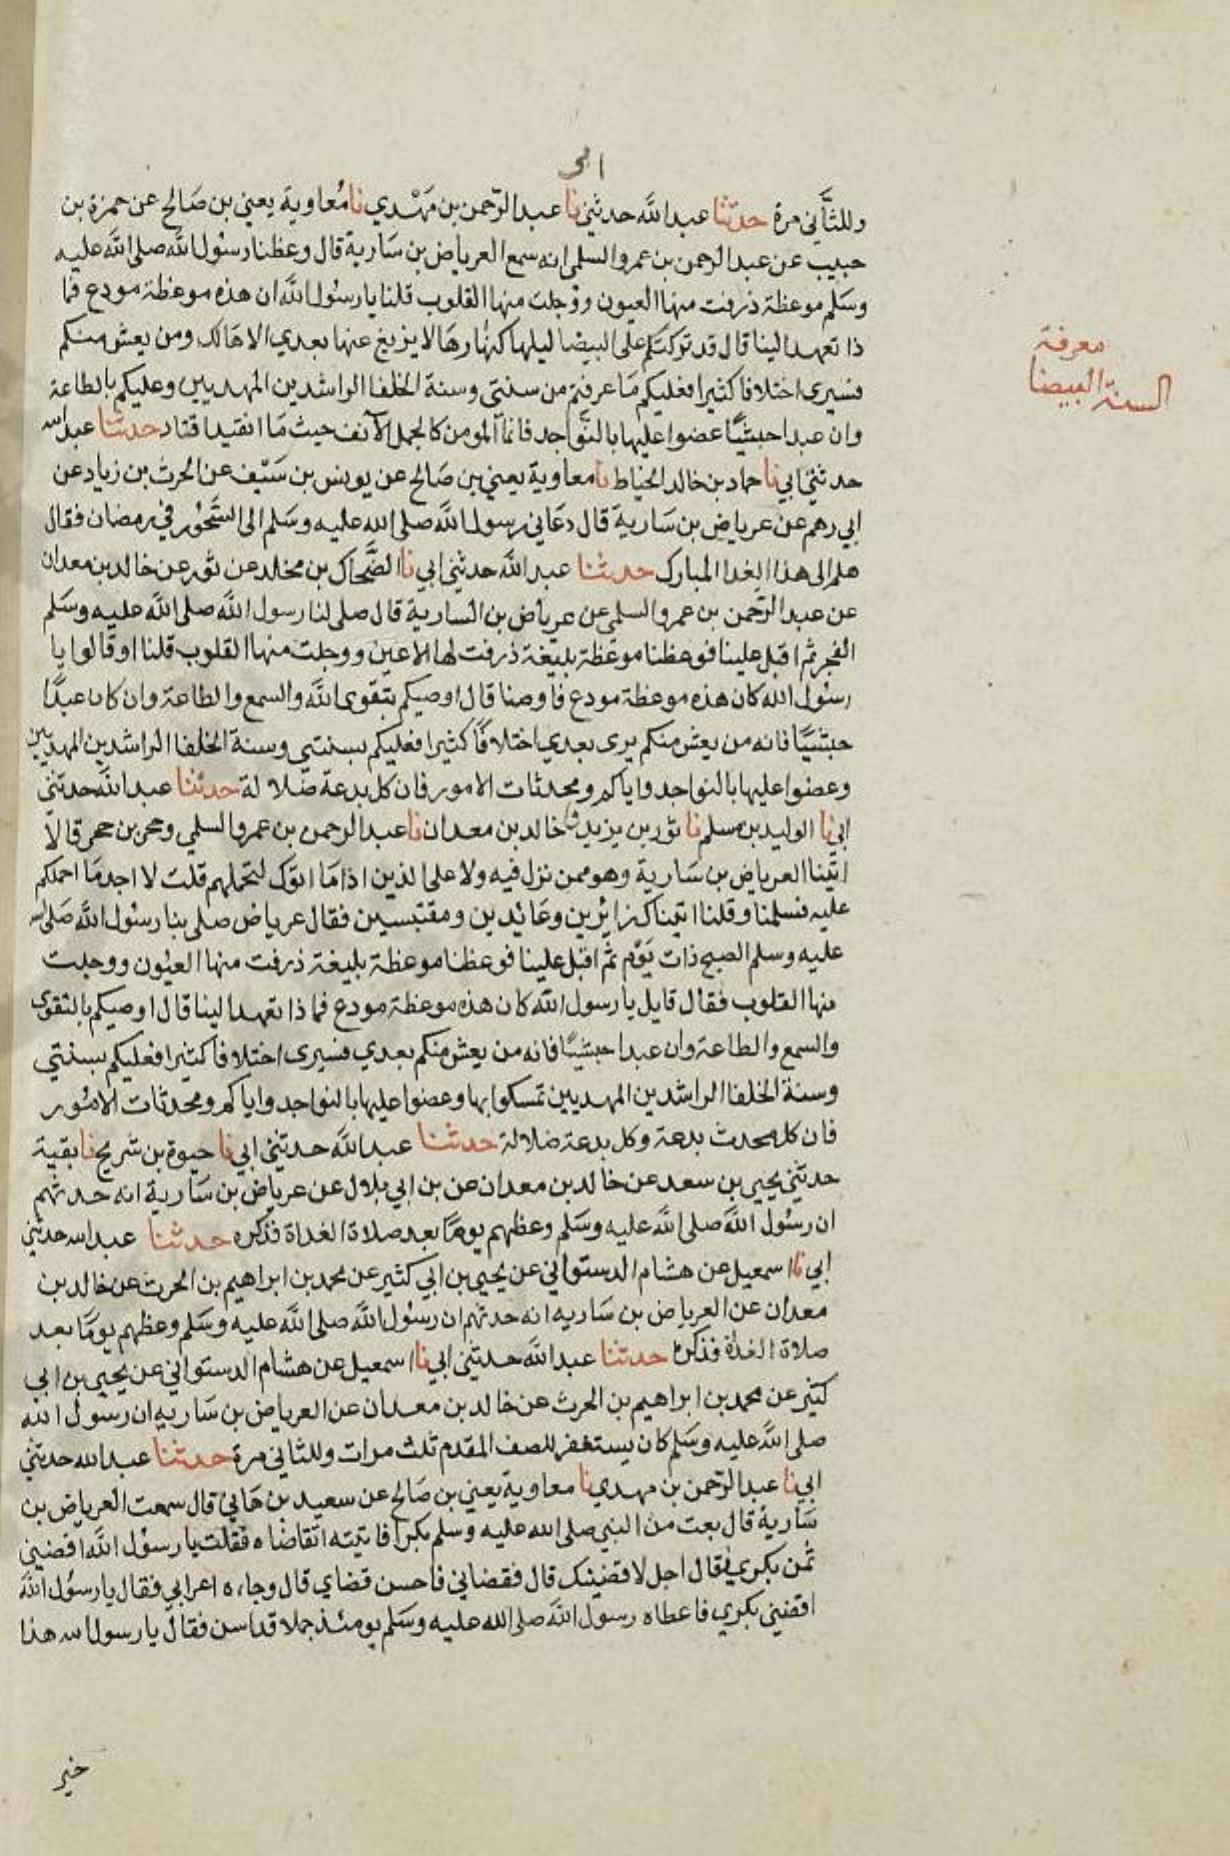 ابى
وللثاني مرة حدثنا عبد الله حدثني نا عبد الرحمن بن مهدي نا معاوية يعني بن صالح عن حمزة بن
حبيب عن عبد الرحمن بن عمرو السلمى انه سمع العرباض بن سارية قال وعظنا رسول الله صلى الله عليه
وسلم موعظة ذرفت منها العيون ووجلت منها القلوب قلنا يا رسول الله ان هذه موعظة مودع فما
ذا تعهد الينا قال قد تركتكم على البيضا ليلها كنهارها لا يزيغ عنها بعدي الا هالك ومن يعش منكم
فسيرى اختلافا كثيرا فعليكم ما عرفتم من سنتي وسنة الخلفا الراشدين المهديين وعليكم بالطاعة
وان عبدا حبشيًا عضوا عليها بالنواجد فانما المومن كالجمل الآنف حيث ما انقيد انقاد حدثنا عبد الله
حدثني ابي نا حماد بن خالد الخياط نا معاوية يعني بن صالح عن يونس بن سيف عن الحرث بن زياد عن
ابي رهم عن عرباض بن سارية قال دعاني رسول الله صلى الله عليه وسلم الى السحور في رمضان فقال
هلم الى هذا الغدا المبارك حدثنا عبد الله حدثني ابي نا الضحاك بن مخلد عن ثور عن خالد بن معدان
عن عبد الرحمن بن عمرو السلمي عن عرباض بن السارية قال صلى لنا رسول الله صلى الله عليه وسلم
الفجر ثم اقبل علينا فوعظنا موعظة بليغة ذرفت لها الاعين ووجلت منها القلوب قلنا او قالوا يا
رسول الله كان هذه موعظة مودع فاوصنا قال اوصيكم بتقوى الله والسمع والطاعة وان كان عبدًا
حبشيًا فانه من يعش منكم يرى بعدي اختلافًا كثيرا فعليكم بسنتي وسنة الخلفا الراشدين المهديين
وعضوا عليها بالنواجد واياكم ومحدثات الامور فان كل بدعة ضلالة حدثنا عبد الله حدثني
ابي نا الوليد بن مسلم نا ثور بن يزيد خالد بن معدان نا عبد الرحمن بن عمرو السلمي وحجر بن حجر قالا
اتينا العرباض بن سارية وهو ممن نزل فيه ولا على الذين اذا ما اتوك لتحملهم قلت لا اجد ما احملكم
عليه فسلمنا وقلنا اتيناك زائرين وعائدين ومقتبسين فقال عرباض صلى بنا رسول الله صلى الله
عليه وسلم الصبح ذات يوم ثم اقبل علينا فوعظنا موعظة بليغة ذرفت منها العيون ووجلت
منها القلوب فقال قايل يا رسول الله كان هذه موعظة مودع فما ذا تعهد الينا قال اوصيكم بالتقوى
والسمع والطاعة وان عبدا حبشيًا فانه من يعش منكم بعدي فسيرى اختلافا كثيرا فعليكم بسنتي
وسنة الخلفا الراشدين المهديين تمسكوا بها وعضوا عليها بالنواجد واياكم ومحدثات الامور
فان كل محدث بدعة وكل بدعة ضلالة حدثنا عبد الله حدثني ابي نا حيوة بن شريح نا بقية
حدثني يحيى بن سعد عن خالد بن معدان عن بن ابي بلال عن عرباض بن سارية انه حدثهم
ان رسول الله صلى الله عليه وسلم وعظهم يومًا بعد صلاة الغداة فذكره حدثنا عبد الله حدثني
ابي نا اسمعيل عن هشام الدستوائي عن يحيى بن ابي كثير عن محمد بن ابراهيم بن الحرث عن خالد بن
معدان عن العرباض بن ساريه انه حدثهم ان رسول الله صلى الله عليه وسلم وعظهم يومًا بعد
صلاة الغداة فذكره حدثنا عبد الله حدثني ابي نا اسمعيل عن هشام الدستوائي عن يحيى بن ابي
كثير عن محمد بن ابراهيم بن الحرث عن خالد بن معدان عن العرباض بن ساريه ان رسول الله
صلى الله عليه وسلم كان يستغفر للصف المقدم ثلث مرات وللثاني مرة حدثنا عبد الله حدثني
ابي نا عبد الرحمن بن مهدي نا معاوية يعني بن صالح عن سعيد بن هانئ قال سمعت العرباض بن
سارية قال بعت من النبي صلى الله عليه وسلم بكرا فاتيته اتقاضاه فقلت يا رسول الله اقضيني
ثمن بكري فقال اجل لاقضينك قال فقضاني فاحسن قضاي قال وجاءه اعرابي فقال يا رسول الله
اقضني بكري فاعطاه رسول الله صلى الله عليه وسلم يومئذ جملا قد اسن فقال يا رسول الله هذا
خير
معرفة
السنة البيضا